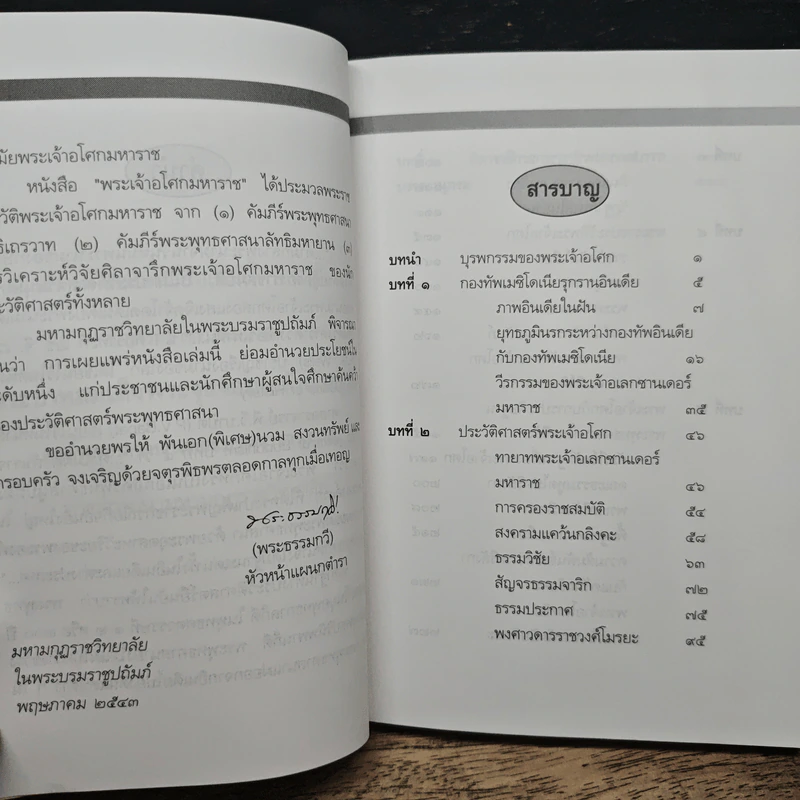 มัยพระเจ้าอโศกมหาราช
หนังสือ "พระเจ้าอโศกมหาราช" ได้ประมวลพระราช
วัติพระเจ้าอโศกมหาราช จาก (๑) คัมภีร์พระพุทธศาสนา
ธิเถรวาท (๒) คัมภีร์พระพุทธศาสนาลัทธิมหายาน (๓)
รวิเคราะห์วิจัยศิลาจารึกพระเจ้าอโศกมหาราช ของนัก
ะวัติศาสตร์ทั้งหลาย
มหามกุฏราชวิทยาลัยในพระบรมราชูปถัมภ์ พิจารณา
นว่า การเผยแพร่หนังสือเล่มนี้ ย่อมอำนวยประโยชน์ใน
ะดับหนึ่ง แก่ประชาชนและนักศึกษาผู้สนใจศึกษาค้นคว้า
องประวัติศาสตร์พระพุทธศาสนา
ขออำนวยพรให้ พันเอก(พิเศษ)นวม สงวนทรัพย์ และ
ครอบครัว จงเจริญด้วยจตุรพิธพรตลอดกาลทุกเมื่อเทอญ
(พระธรรมกวี)
หัวหน้าแผนกตำรา
มหามกุฏราชวิทยาลัย
ในพระบรมราชูปถัมภ์
พฤษภาคม ๒๕๔๓
สารบาญ
บทนำ บุรพกรรมของพระเจ้าอโศก ๑
บทที่ ๑ กองทัพเมซิโดเนียรุกรานอินเดีย ๕
ภาพอินเดียในฝัน ๗
ยุทธภูมินรกระหว่างกองทัพอินเดีย
กับกองทัพเมซิโดเนีย ๑๖
วีรกรรมของพระเจ้าอเลกซานเดอร์
มหาราช ๓๕
บทที่ ๒ ประวัติศาสตร์พระเจ้าอโศก ๔๖
ทายาทพระเจ้าอเลกซานเดอร์
มหาราช ๔๖
การครองราชสมบัติ ๕๔
สงครามแคว้นกลิงคะ ๕๘
ธรรมวิชัย ๖๓
สัญจรธรรมจาริก ๗๒
ธรรมประกาศ ๗๕
พงศาวดารราชวงศ์โมรยะ ๙๕